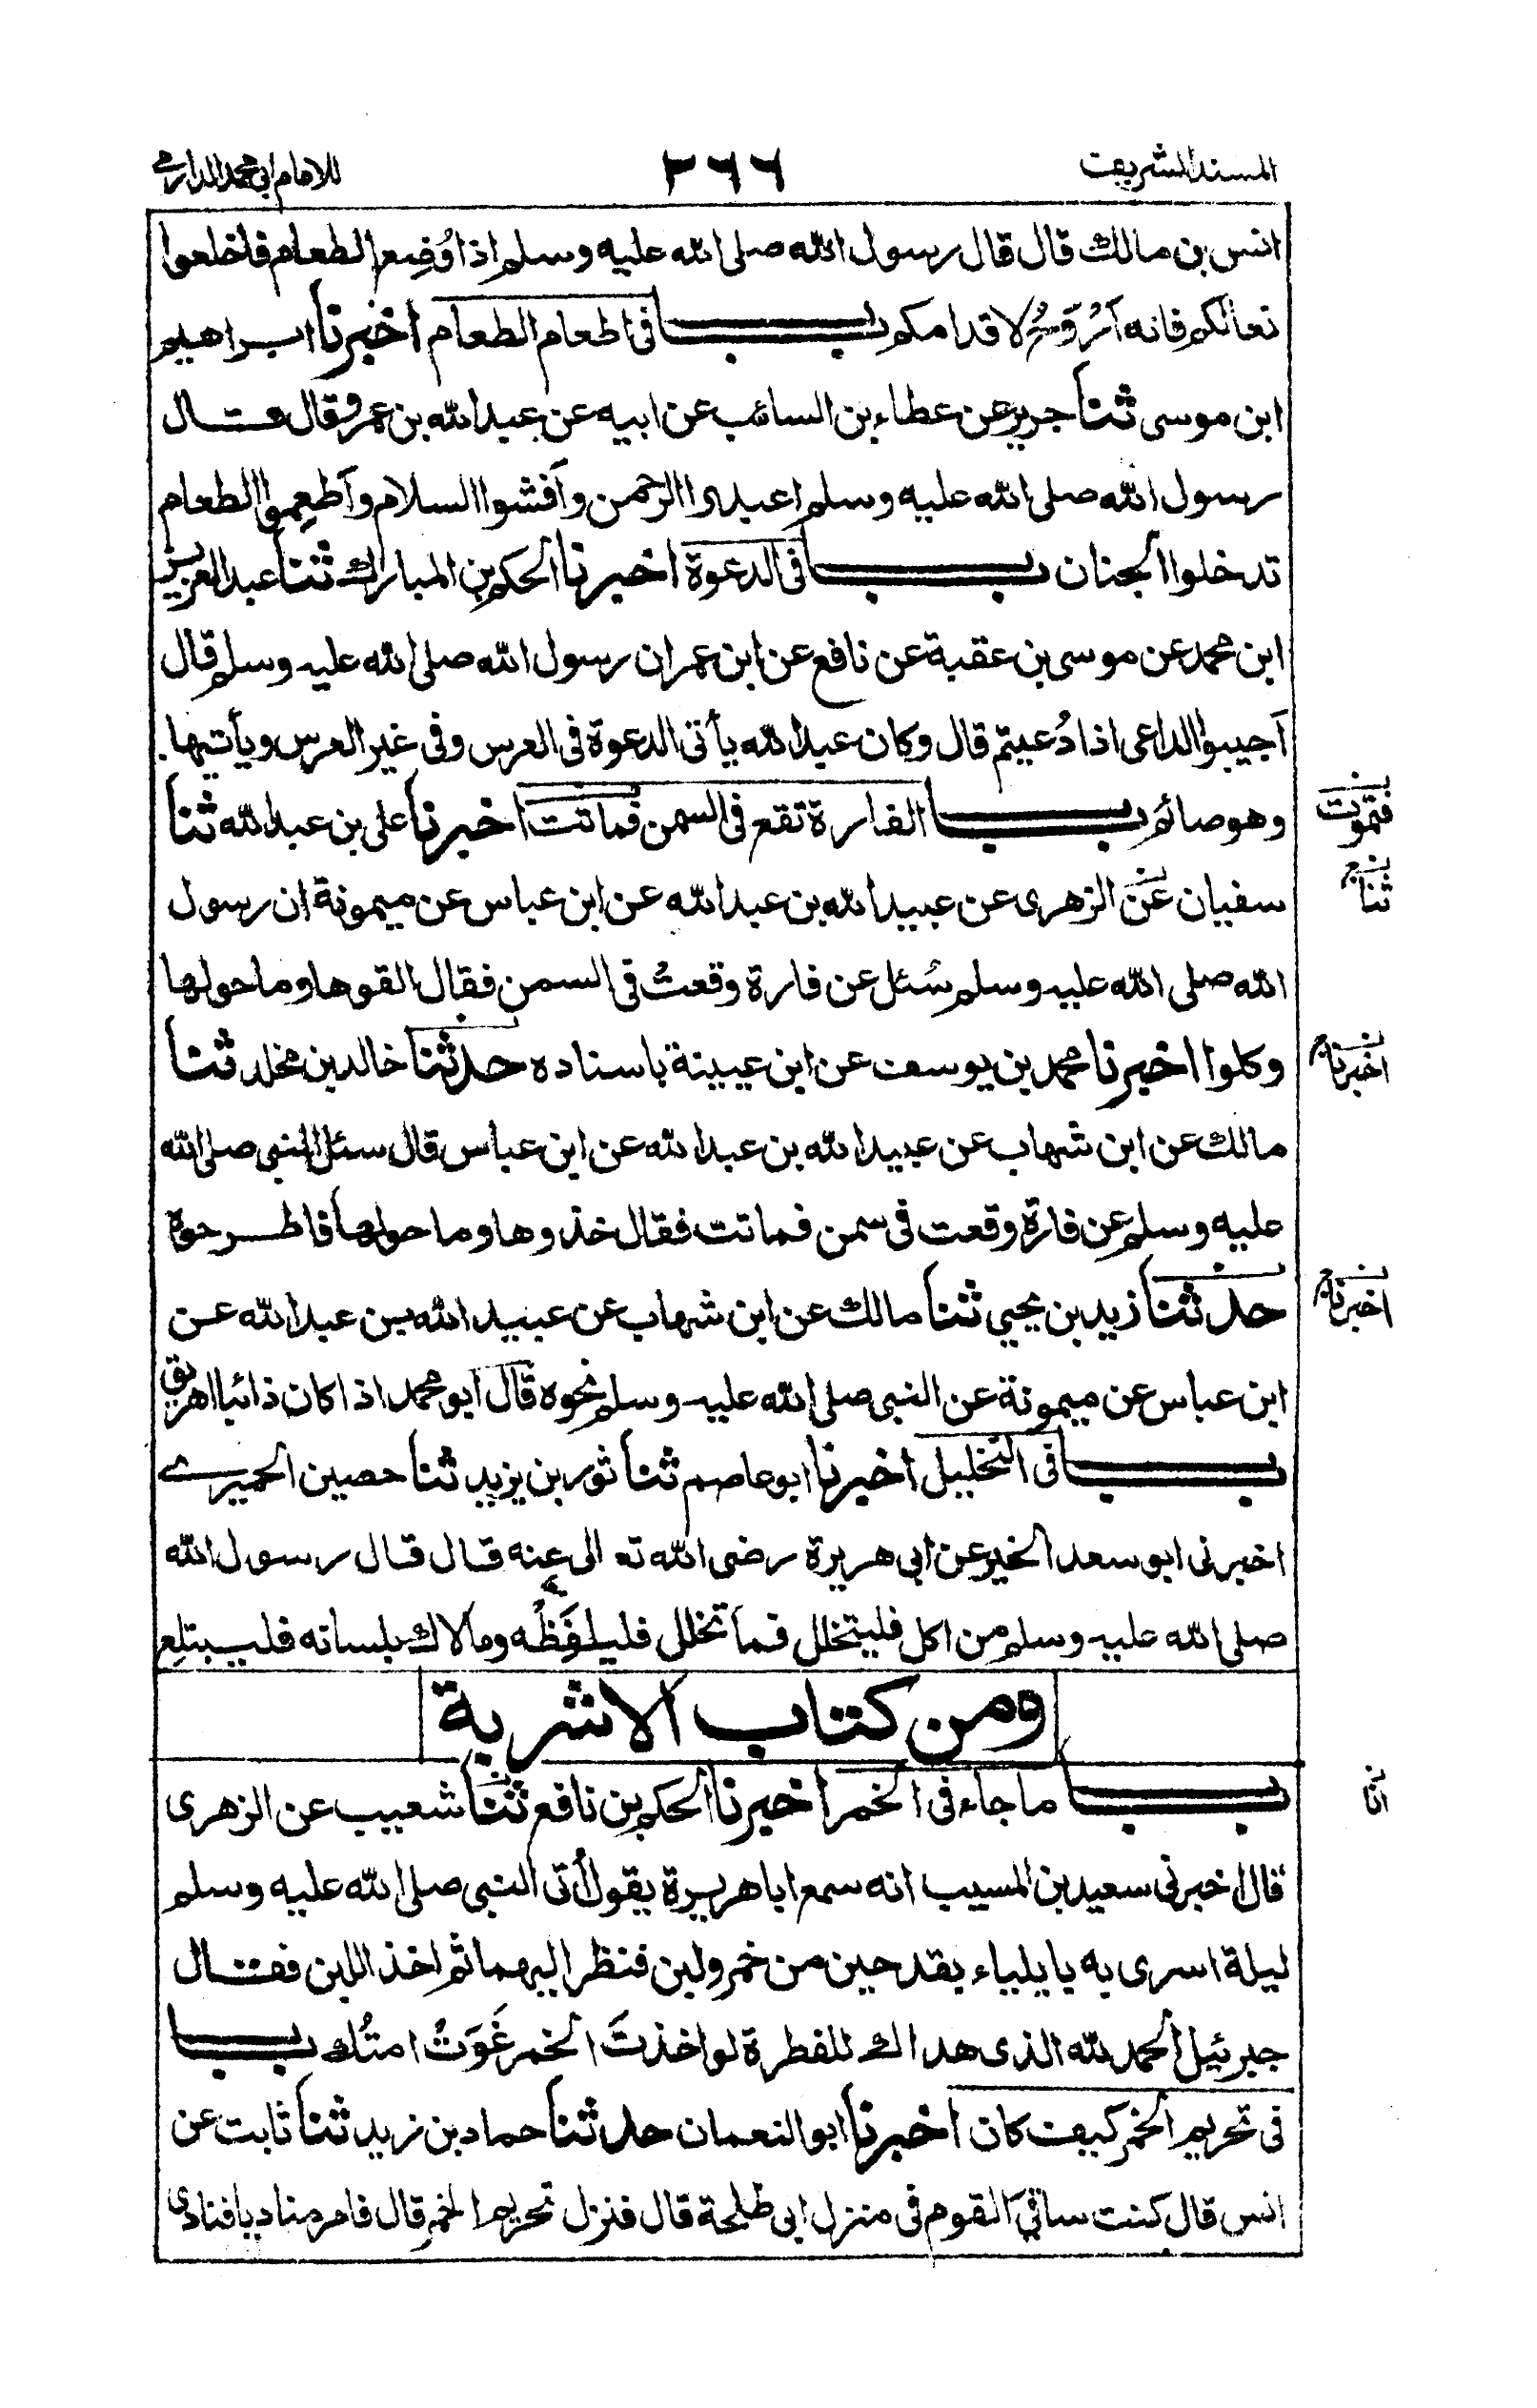 المسند الشريف ٢٦٦ للامام ابي محمد الدارمي
انس بن مالك قال قال رسول الله صلى الله عليه وسلم اذا وُضِع الطعام فاخلعوا
نعالكم فانه اَرْوَحُ لاقدامكم باب فى اطعام الطعام اخبرنا ابراهيم
ابن موسى ثنا جرير عن عطاء بن السائب عن ابيه عن عبد الله بن عمرو قال قال
رسول الله صلى الله عليه وسلم اعبدوا الرحمن وَاَفشوا السلام وَاَطعِموا الطعام
تدخلوا الجنان باب فى الدعوة اخبرنا الحكم بن المبارك ثنا عبد العزيز
ابن محمد عن موسى بن عقبة عن نافع عن ابن عمر ان رسول الله صلى الله عليه وسلم قال
اَجيبوا الداعى اذا دُعيتم قال وكان عبد الله يأتى الدعوة فى العرس وفى غير العرس ويأتيها
وهو صائم باب الفارة تقع فى السمن فماتت اخبرنا على بن عبد الله ثنا
فتموت
سفيان عن الزهرى عن عبيد الله بن عبد الله عن ابن عباس عن ميمونة ان رسول
ثنا
الله صلى الله عليه وسلم سُئل عن فارة وقعتْ فى السمن فقال القوها وما حولها
وكلوا اخبرنا محمد بن يوسف عن ابن عيينة باسناده حدثنا خالد بن مخلد ثنا
اخبرنا
مالك عن ابن شهاب عن عبيد الله بن عبد الله عن ابن عباس قال سئل النبى صلى الله
عليه وسلم عن فارة وقعت فى سمن فماتت فقال خذوها وما حولها فاطرحوه
حدثنا زيد بن يحيي ثنا مالك عن ابن شهاب عن عبيد الله بن عبد الله عن
اخبرنا
ابن عباس عن ميمونة عن النبى صلى الله عليه وسلم نحوه قال ابو محمد اذا كان ذائبا اهريق
باب فى التخليل اخبرنا ابو عاصم ثنا ثور بن يزيد ثنا حصين الحميرى
اخبرنى ابو سعد الخير عن ابى هريرة رضى الله تعالى عنه قال قال رسول الله
صلى الله عليه وسلم من اكل فليتخلل فما تخلل فليلفَظْه وما لاك بلسانه فليبتلع
ومن كتاب الاشربة
باب ما جاء فى الخمر اخبرنا الحكم بن نافع ثنا شعيب عن الزهرى
انا
قال اخبرنى سعيد بن المسيب انه سمع ابا هريرة يقول اُتى النبى صلى الله عليه وسلم
ليلة اسرى به بايلياء بقدحين من خمر ولبن فنظر اليهما ثم اخذ اللبن فقال
جبرئيل الحمد لله الذى هداك للفطرة لو اخذتَ الخمر غَوَتْ امتُك باب
فى تحريم الخمر كيف كان اخبرنا ابو النعمان حدثنا حماد بن زيد ثنا ثابت عن
انس قال كنت ساقىَ القوم فى منزل ابى طلحة قال فنزل تحريم الخمر قال فامر مناديا فنادى